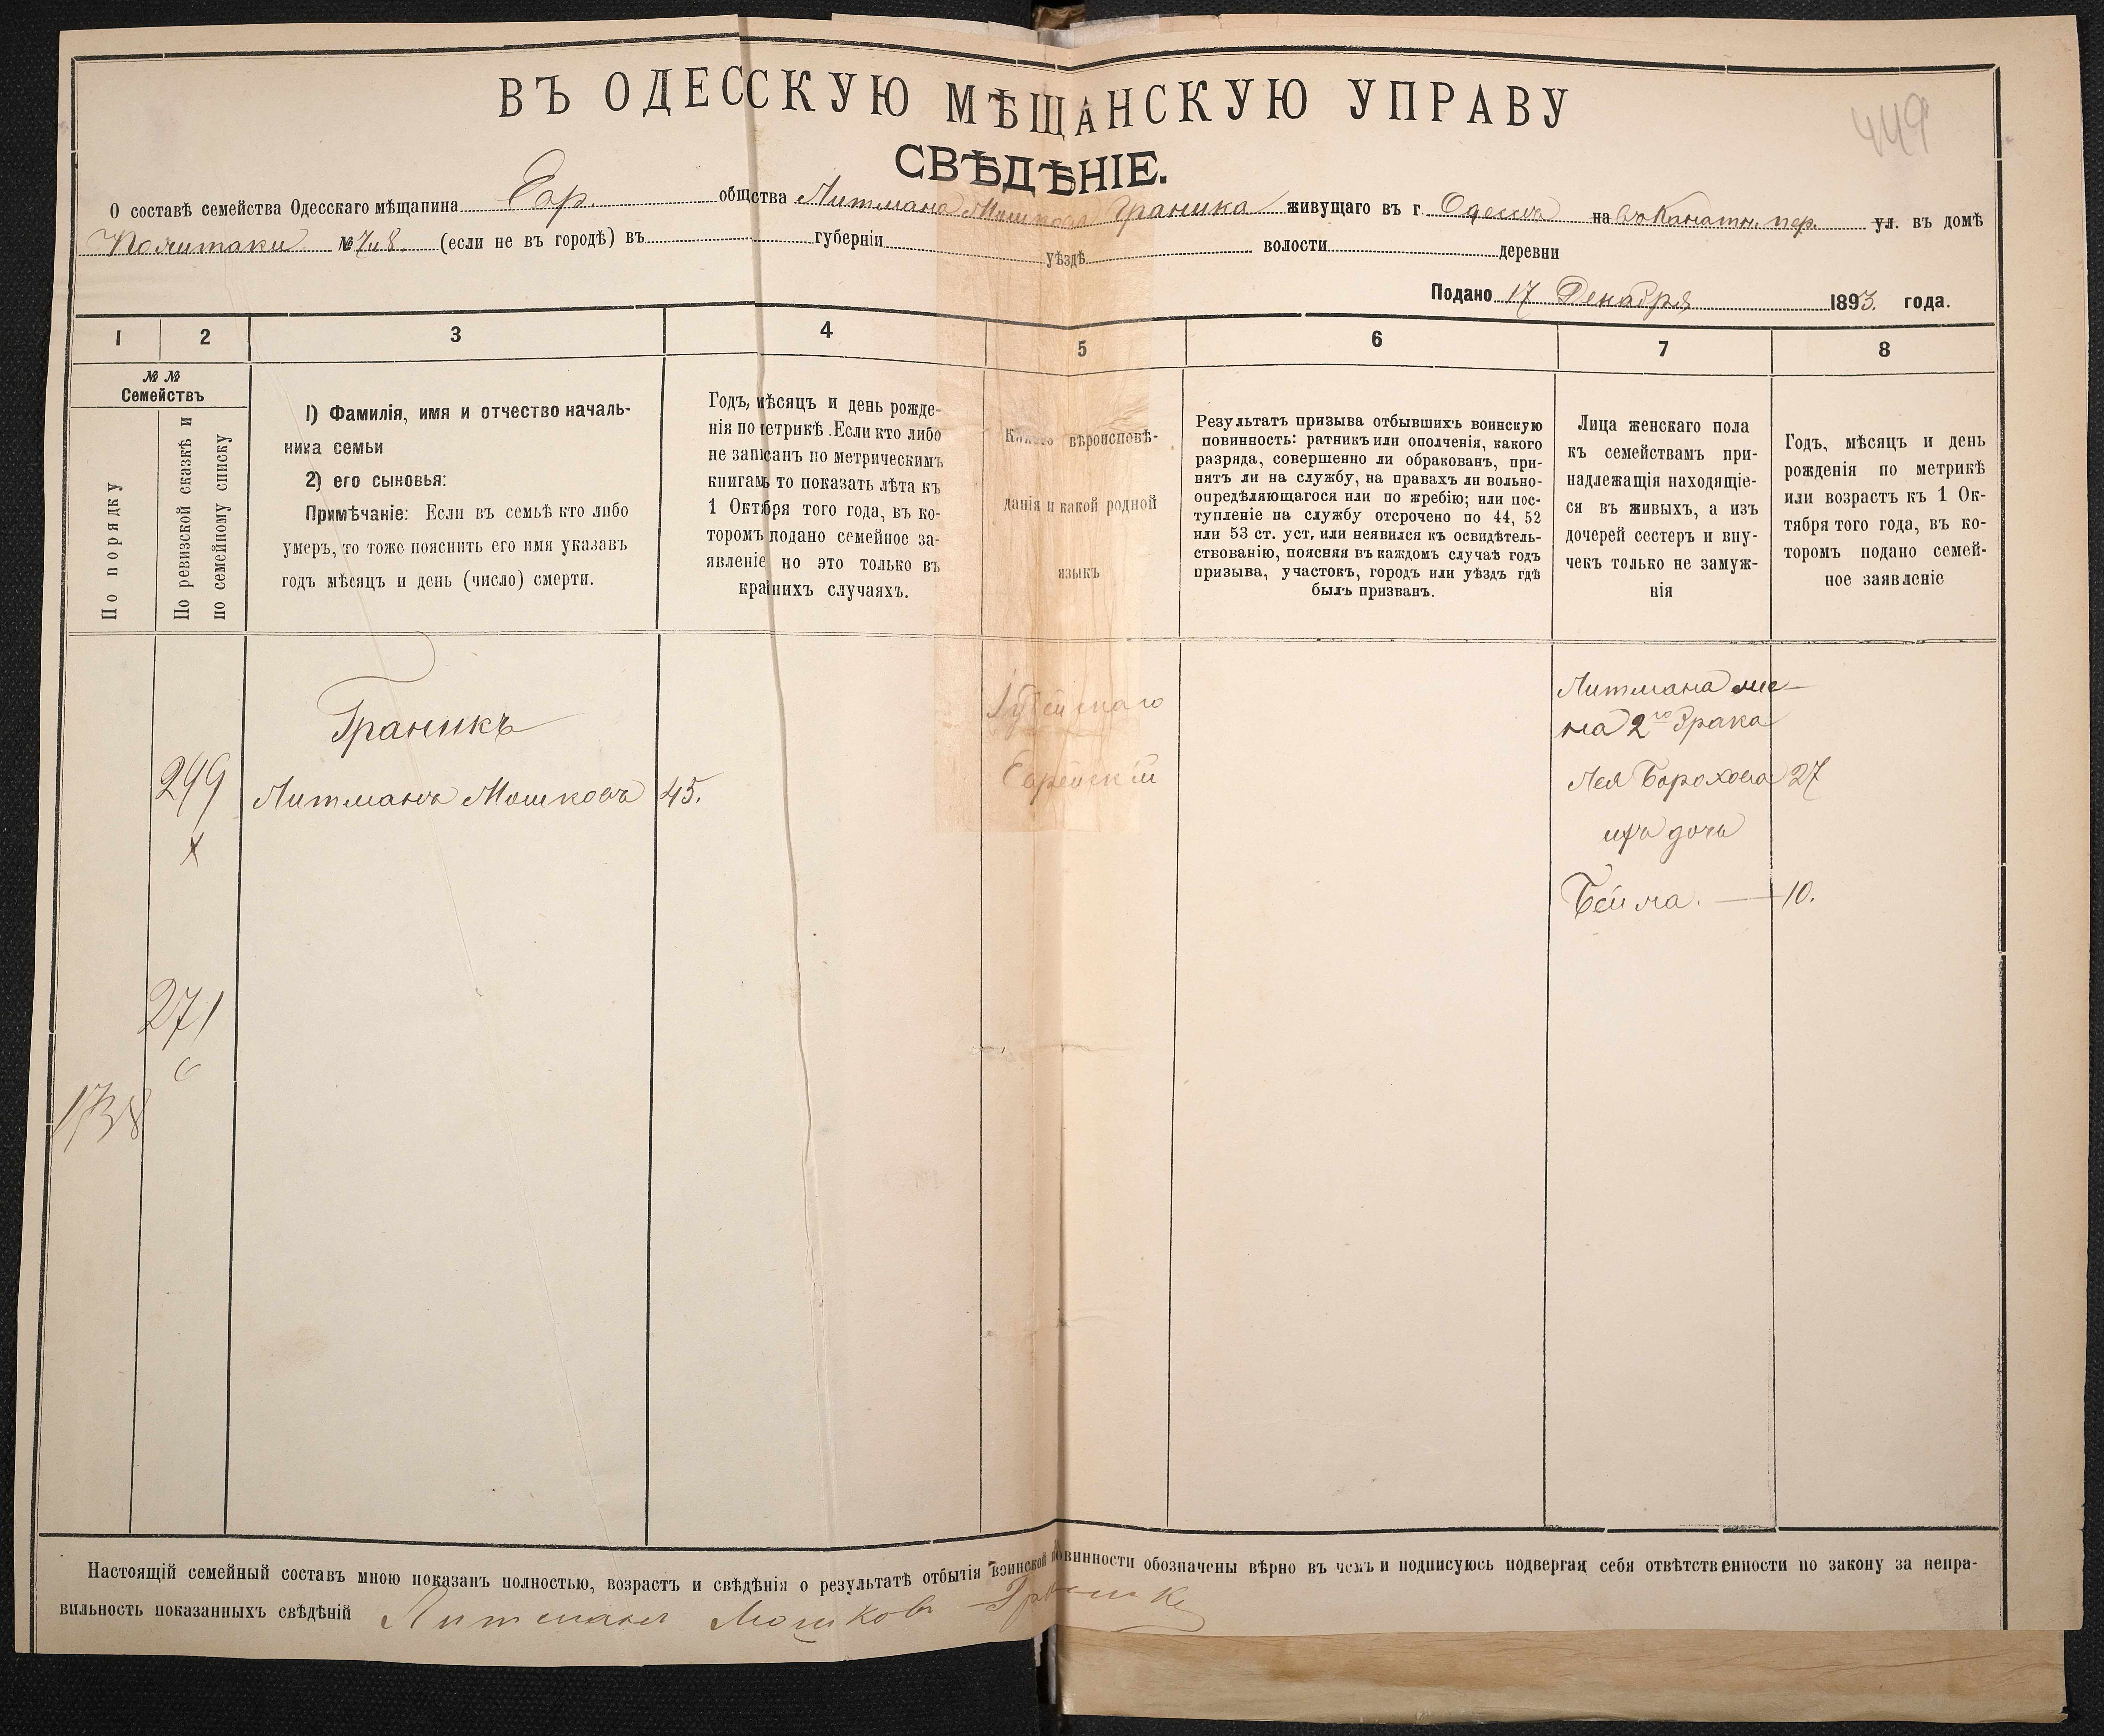 ВЪ ОДЕССКУЮ МѢЩАНСКУЮ УПРАВУ
449
СВѢДѢНІЕ.
О составѣ семейства Одесскаго мѣщанина Евр. общства Литмана Мошкова Граника живущаго въ г. Одессѣ на Канатн. пер. ул. въ домѣ
№ 7 и 8. (если не въ городѣ) въ губерніи уѣздѣ волости деревни
Подано 17 Декабря 1893. года.
1 2 3 4 5 6 7 8
№ №
Семействъ
По порядку
По ревизской сказкѣ и
по семейному списку
1) Фамилія, имя и отчество началь-
ника семьи
2) его сыновья:
Примѣчаніе: Если въ семьѣ кто либо
умеръ, то тоже пояснить его имя указавъ
годъ мѣсяцъ и день (число) смерти.
Годъ, мѣсяцъ и день рожде-
нія по метрикѣ. Если кто либо
не записанъ по метрическимъ
книгамъ то показать лѣта къ
1 Октября того года, въ ко-
торомъ подано семейное за-
явленіе но это только въ
крайнихъ случаяхъ.
Какого вѣроисповѣ-
данія и какой родной
языкъ
Результатъ призыва отбывшихъ воинскую
повинность: ратникъ или ополченія, какого
разряда, совершенно ли обракованъ, при-
нятъ ли на службу, на правахъ ли вольно-
опредѣляющагося или по жребію; или пос-
тупленіе на службу отсрочено по 44, 52
или 53 ст. уст, или неявился къ освидѣтель-
ствованію, поясняя въ каждомъ случаѣ годъ
призыва, участокъ, городъ или уѣздъ гдѣ
былъ призванъ.
Лица женскаго пола
къ семействамъ при-
надлежащія находящіе-
ся въ живыхъ, а изъ
дочерей сестеръ и вну-
чекъ только не замуж-
нія
Годъ, мѣсяцъ и день
рожденія по метрикѣ
или возрастъ къ 1 Ок-
тября того года, въ ко-
торомъ подано семей-
ное заявленіе
Граникъ
299
Литманъ Мошковъ 45.
Іудейскаго
Еврейскій
Литмана же-
на 2го брака
Лея Борохова 27
ихъ дочь
Бейла. — 10.
271
1738
Настоящій семейный составъ мною показанъ полностью, возрастъ и свѣдѣнія о результатѣ отбытія воинской повинности обозначены вѣрно въ чемъ и подписуюсь подвергая себя отвѣтственности по закону за непра-
вильность показанныхъ свѣдѣній Литманъ Мошковъ